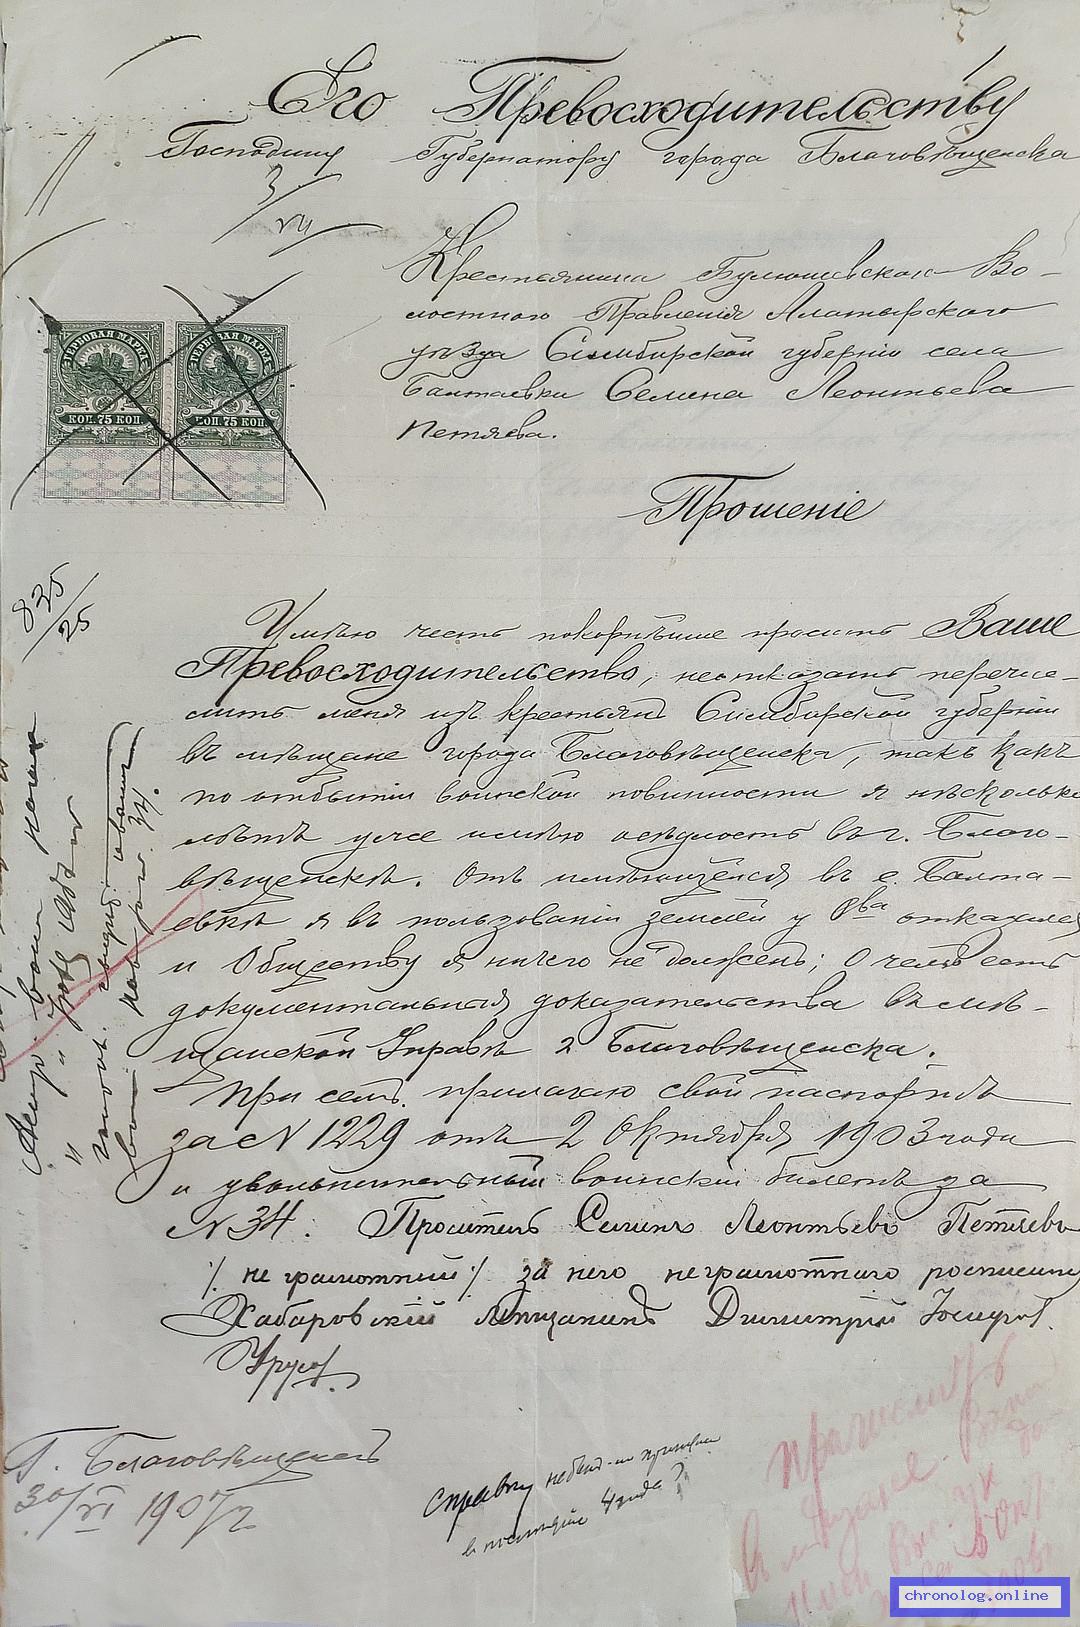 Его Превосходительству
Господину Губернатору города Благовѣщенска
3/VII
Крестьянина Во-
лостного Правленія Алатырскаго
уѣзда Симбирской губерніи села
Балтаевки Селина Леонтьева
Петяева.
ГЕРБОВАЯ МАРКА ГЕРБОВАЯ МАРКА
КОП. 75 КОП. КОП. 75 КОП.
Прошеніе
835/25
Имѣю честь покорнѣйше просить Ваше
Превосходительство, неотказать перечис-
лить меня изъ крестьянъ Симбирской губерніи
въ мѣщане города Благовѣщенска, такъ какъ
по отбытіи воинской повинности я нѣсколько
лѣтъ уже имѣю осѣдлость въ г. Благо-
вѣщенскѣ. Отъ имѣющейся въ с. Балта-
евкѣ я въ пользованіи землей у Ова отказался
и Обществу я ничего не долженъ; О чемъ есть
документальныя доказательства въ мѣ-
щанской Управѣ г Благовѣщенска.
При семъ прилагаю свой паспортъ
за № 1229 отъ 2 Октября 1903 года
и увольнительный воинскій билетъ за
№ 34. Проситель Селинъ Леонтьевъ Петяевъ
/. не грамотный ./ за него неграмотнаго росписался
Хабаровскій мѣщанинъ Димитрій
Г. Благовѣщенскъ
30/VI 1907 г
Справку
в настоящее
Причислить
въ мѣщане
chronolog.online